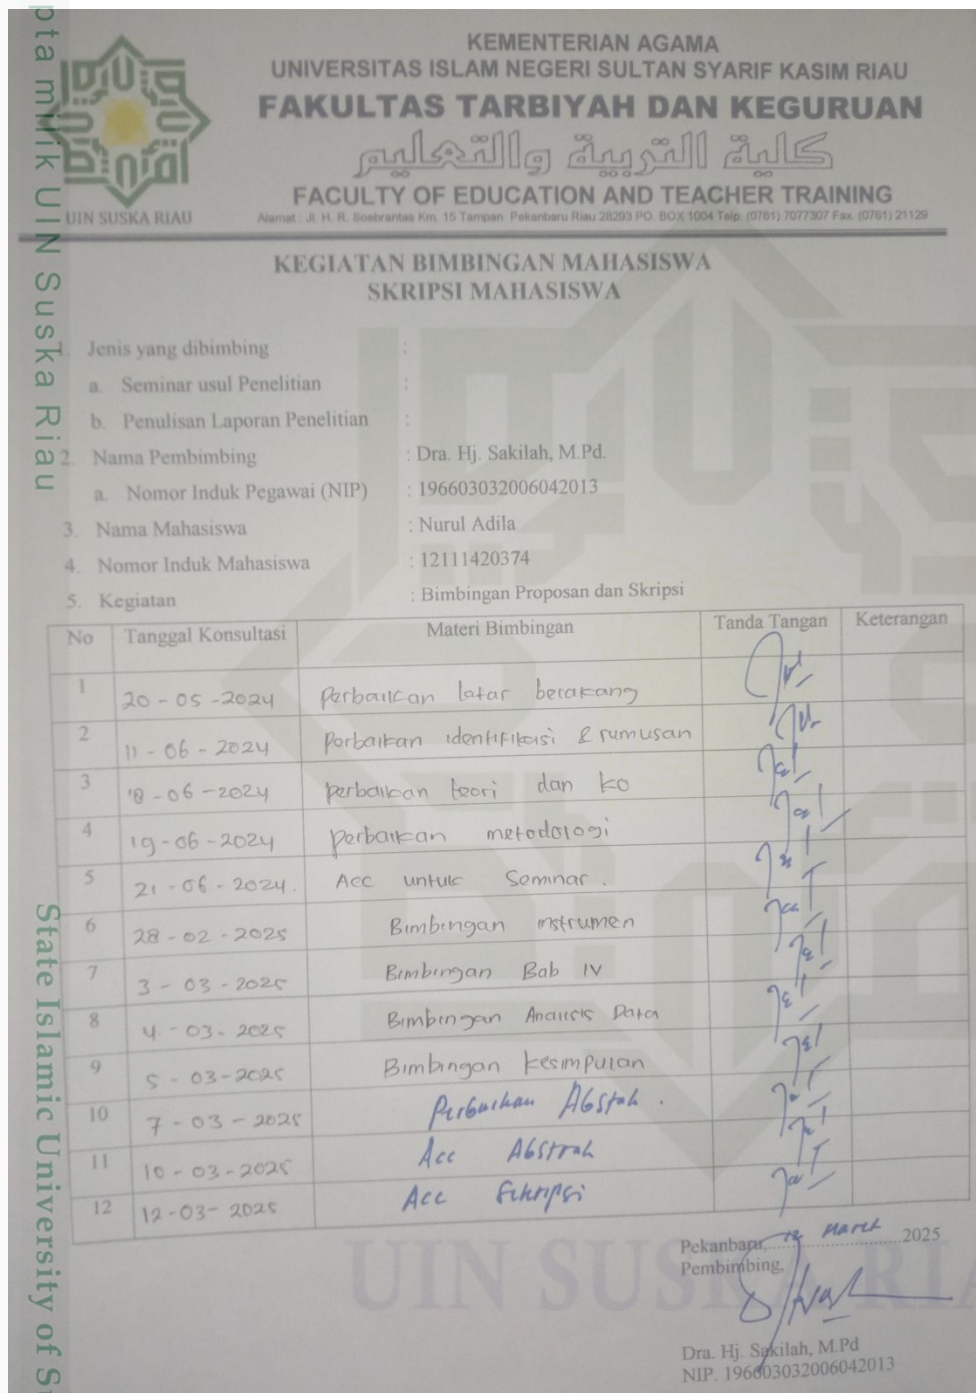 KEMENTERIAN AGAMA
UNIVERSITAS ISLAM NEGERI SULTAN SYARIF KASIM RIAU
FAKULTAS TARBIYAH DAN KEGURUAN
كلية التربية والتعليم
FACULTY OF EDUCATION AND TEACHER TRAINING
Alamat : Jl. H. R. Soebrantas Km. 15 Tampan Pekanbaru Riau 28293 PO. BOX 1004 Telp. (0761) 7077307 Fax. (0761) 21129
UIN SUSKA RIAU
KEGIATAN BIMBINGAN MAHASISWA
SKRIPSI MAHASISWA
1. Jenis yang dibimbing :
a. Seminar usul Penelitian :
b. Penulisan Laporan Penelitian :
2. Nama Pembimbing : Dra. Hj. Sakilah, M.Pd.
a. Nomor Induk Pegawai (NIP) : 196603032006042013
3. Nama Mahasiswa : Nurul Adila
4. Nomor Induk Mahasiswa : 12111420374
5. Kegiatan : Bimbingan Proposan dan Skripsi
No Tanggal Konsultasi Materi Bimbingan Tanda Tangan Keterangan
1 20-05-2024 Perbaikan latar berakang
2 11-06-2024 Perbaikan identifikasi & rumusan
3 18-06-2024 Perbaikan teori dan ko
4 19-06-2024 Perbaikan metodologi
5 21-06-2024. Acc untuk Seminar.
6 28-02-2025 Bimbingan instrumen
7 3-03-2025 Bimbingan Bab IV
8 4-03-2025 Bimbingan Analisis Data
9 5-03-2025 Bimbingan Kesimpulan
10 7-03-2025 Perbaikan Abstrak.
11 10-03-2025 Acc Abstrak
12 12-03-2025 Acc Skripsi
Pekanbaru, 12 Maret 2025
Pembimbing,
Dra. Hj. Sakilah, M.Pd
NIP. 196603032006042013
UIN SUSKA RIA
pta milik UIN Suska Riau
State Islamic University of S